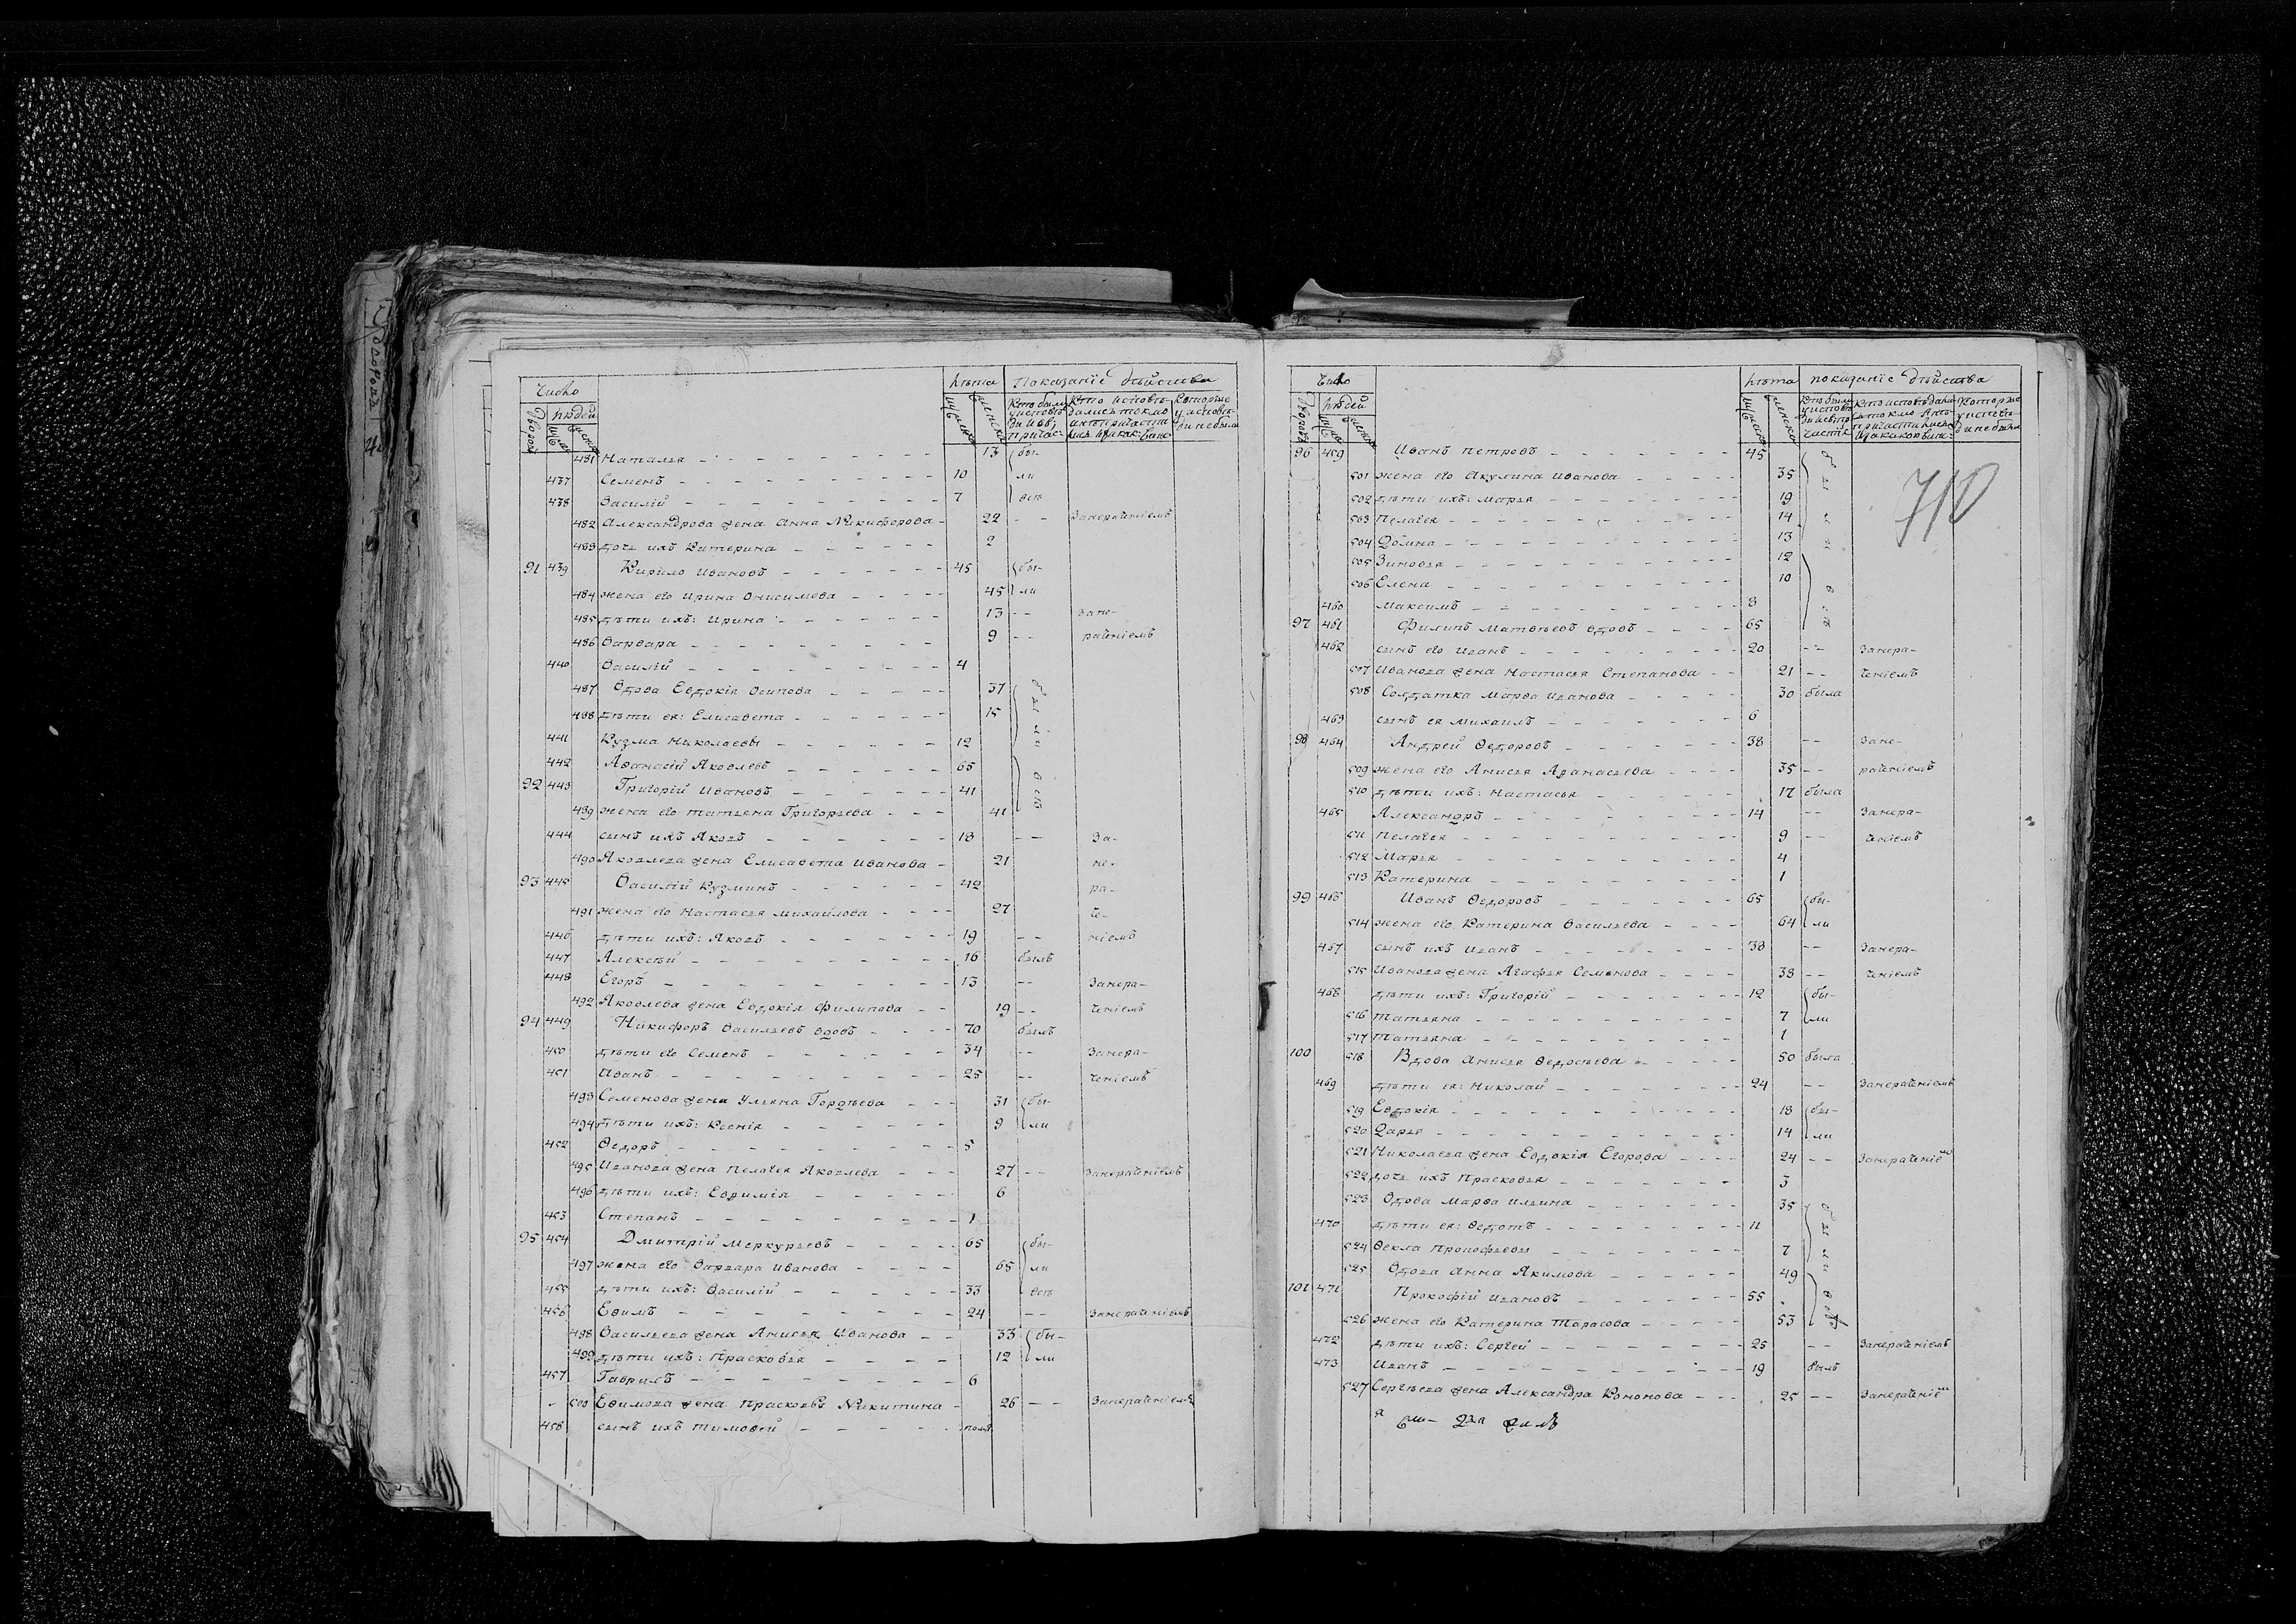 Число
Лѣта
Показанїе дѣйства
Дворов
людей
муж
женска
мужеска
женска
481 Наталья 13 бы-
437 Семенъ 10 ли
438 Василїй 7 всѣ
482 Александрова жена Анна Никифорова 22 Занераченїемъ
483 дочь ихъ Катерина 2
91 439 Кирило Ивановъ 45 бы-
484 жена его Ирина Онисимова 45 ли
485 дѣти ихъ: Ирина 13 Зане-
486 Варвара 9 раченїемъ
440 Василїй 4
487 Вдова Евдокїя Осипова 37 были
488 дѣти ея: Елисавета 15
441 Кузма Николаевы 12
442 Афанасїй Яковлевъ 65 всѣ
92 443 Григорїй Ивановъ 41
489 жена его Татьяна Григорьева 41
444 сынъ ихъ Яковъ 18 За-
490 Яковлева жена Елисавета Иванова 21 не-
93 445 Василїй Кузминъ 42 ра-
491 жена его Настасья Михайлова 27 че-
446 дѣти ихъ: Яковъ 19 нїемъ
447 Алексѣй 16 былъ
448 Егоръ 13 Занера-
492 Яковлева жена Евдокїя Филипова 19 ченїемъ
94 449 Никифоръ Васильевъ вдовъ 70 былъ
450 дѣти его Семенъ 34 Занера-
451 Иванъ 25 ченїемъ
493 Семенова жена Ульяна Гордѣева 31 бы-
494 дѣти ихъ: Ксенїя 9 ли
452 Ѳедоръ 5
495 Иванова жена Пелагея Яковлева 27 Занераченїемъ
496 дѣти ихъ: Евфимїя 6
453 Степанъ 1
95 454 Дмитрїй Меркурьевъ 65 бы-
497 жена его Варвара Иванова 65 ли
455 дѣти ихъ: Василїй 33 всѣ
456 Ефимъ 24 Занераченїемъ
498 Васильева жена Анисья Иванова 33 бы-
499 дѣти ихъ: Прасковья 12 ли
457 Гаврилъ 6
500 Ефимова жена Прасковья Никитина 26 Занераченїемъ
458 сынъ ихъ Тимофей полг
Число
Лѣта
показанїе дѣйства
Дворовъ
людей
женска
мужеска
женска
710
96 459 Иванъ Петровъ 45 были
501 жена его Акулина Иванова 35
502 дѣти ихъ: Марья 19
503 Пелагея 14
504 Домна 13
505 Зиновья 12 всѣ
506 Елена 10
460 Максимъ 8
97 461 Филипъ Матвѣевъ вдовъ 65
462 сынъ его Иванъ 20 Занера-
507 Иванова жена Настасья Степанова 21 ченїемъ
508 Солдатка Марфа Иванова 30 была
463 сынъ ея Михаилъ 6
98 464 Андрей Ѳедоровъ 38 Зане-
509 жена его Анисья Афанасьева 35 раченїемъ
510 дѣти ихъ: Настасья 17 была
465 Александръ 14 Занера-
511 Пелагея 9 ченїемъ
512 Марья 4
513 Катерина 1
99 466 Иванъ Ѳедоровъ 65 бы-
514 жена его Катерина Васильева 64 ли
467 сынъ ихъ Иванъ 38 Занера-
515 Иванова жена Агафья Семенова 38 ченїемъ
468 дѣти ихъ: Григорїй 12 бы-
516 Татьяна 7 ли
517 Татьяна 1
100 518 Вдова Анисья Ѳедосѣева 50 была
469 дѣти ея: Николай 24 Занераченїемъ
519 Евдокїя 18 бы-
520 Дарья 14 ли
521 Николаева жена Евдокїя Егорова 24 Занераченїем
522 дочь ихъ Прасковья 3
523 Вдова Марфа Ильина 35 были
470 дѣти ея: Ѳедотъ 11
524 Ѳекла Прокофьевы 7
525 Вдова Анна Якимова 49
101 471 Прокофїй Ивановъ 55 всѣ
526 жена его Катерина Тарасова 53
472 дѣти ихъ: Сергей 25 Занераченїемъ
473 Иванъ 19 былъ
527 Сергѣева жена Александра Кононова 25 Занераченїем